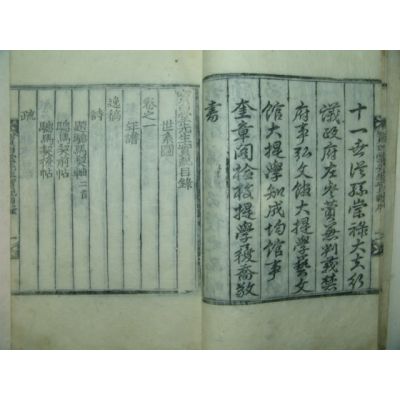 十一世從孫崇祿大夫行
議政府左參贊兼判義禁
府事弘文館大提學藝文
館大提學知成均館事
奎章閣檢校提學
書
堂先生實紀目錄
世系圖
卷之一
年譜
逸稿
詩
題驄馬契軸二首
驄馬契前帖
驄馬契後帖
疏